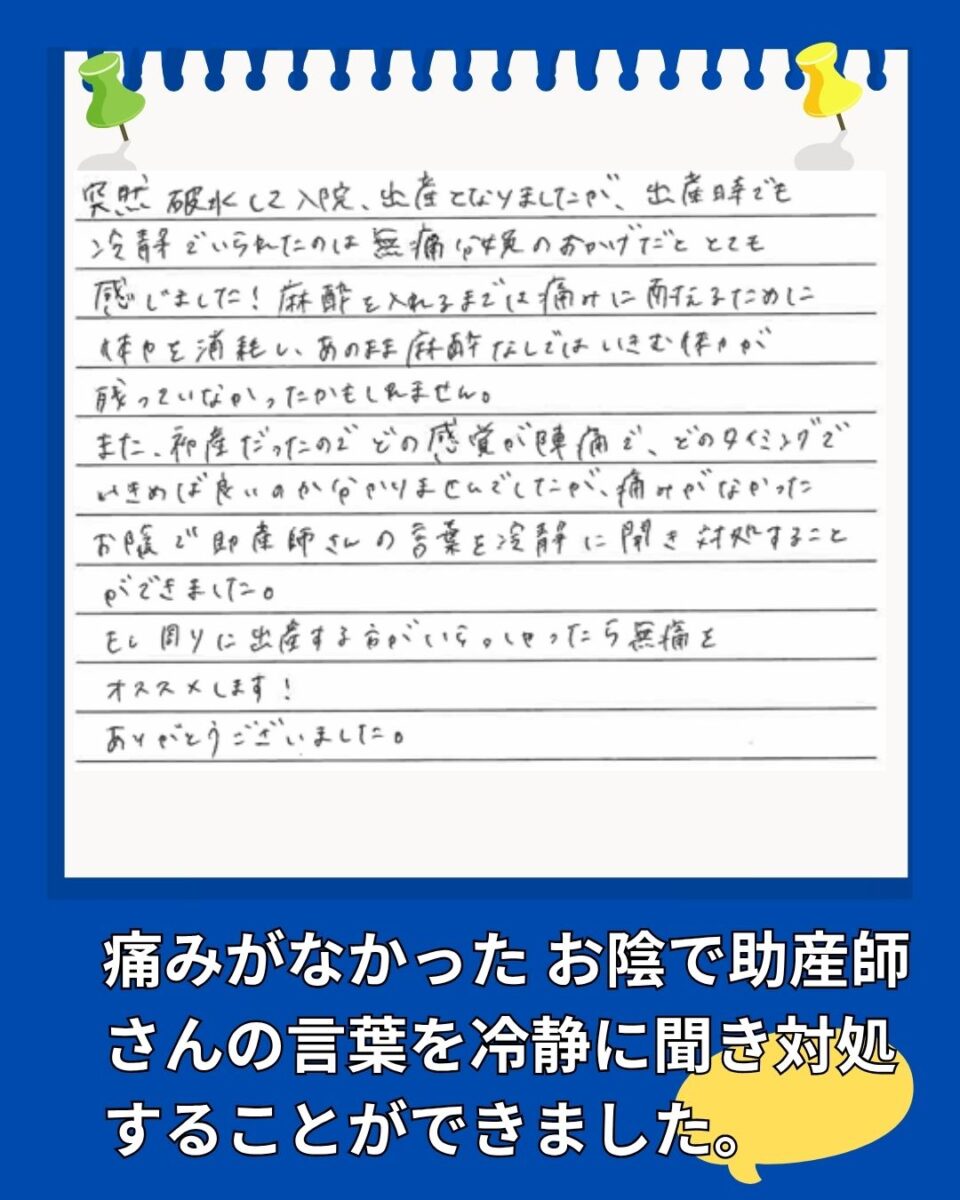 突然 破水して入院、出産となりましたが、出産時でも
冷静でいられたのは無痛分娩のおかげだととても
感じました!麻酔を入れるまでは痛みに耐えるために
体力を消耗し、あのまま麻酔なしではいきむ体力が
残っていなかったかもしれません。
また、初産だったのでどの感覚が陣痛で、どのタイミングで
いきめば良いのか分かりませんでしたが、痛みがなかった
お陰で助産師さんの言葉を冷静に聞き対処すること
ができました。
もし周りに出産する方がいらっしゃったら無痛を
オススメします!
ありがとうございました。
痛みがなかった お陰で助産師
さんの言葉を冷静に聞き対処
することができました。